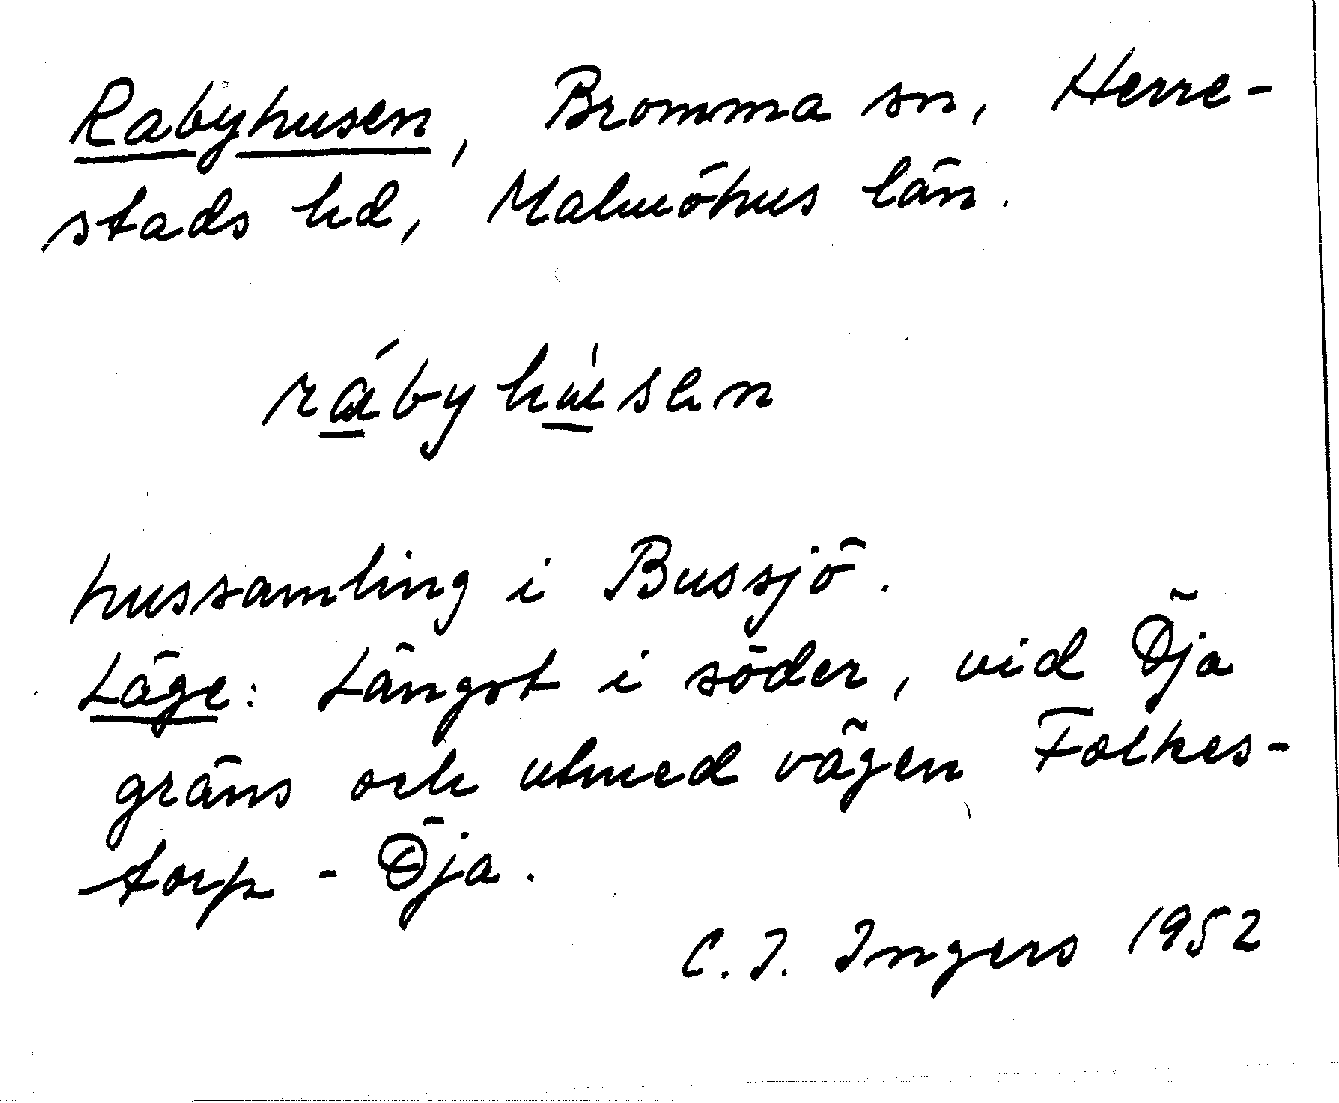 Rabyhusen, Bromma sn, Herre-
stads hd, Malmöhus län.
rábyhúsen
hussamling i Bussjö.
Läge: Längst i söder, vid Öja
gräns och utmed vägen Folkes-
torp - Öja.
C. I. Ingers 1952